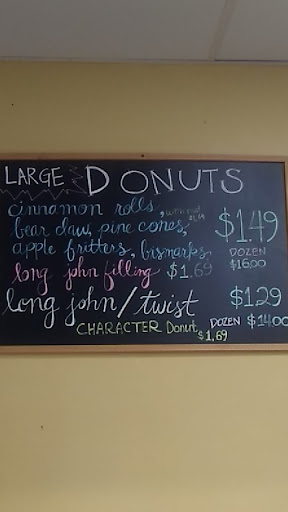 LARGE DONUTS
cinnamon rolls, $1.49
bear claw, pine cones,
apple fritters, bismarks, DOZEN $16.00
long john filling $1.69
long john/twist $1.29
DOZEN $14.00
CHARACTER Donut $1.69